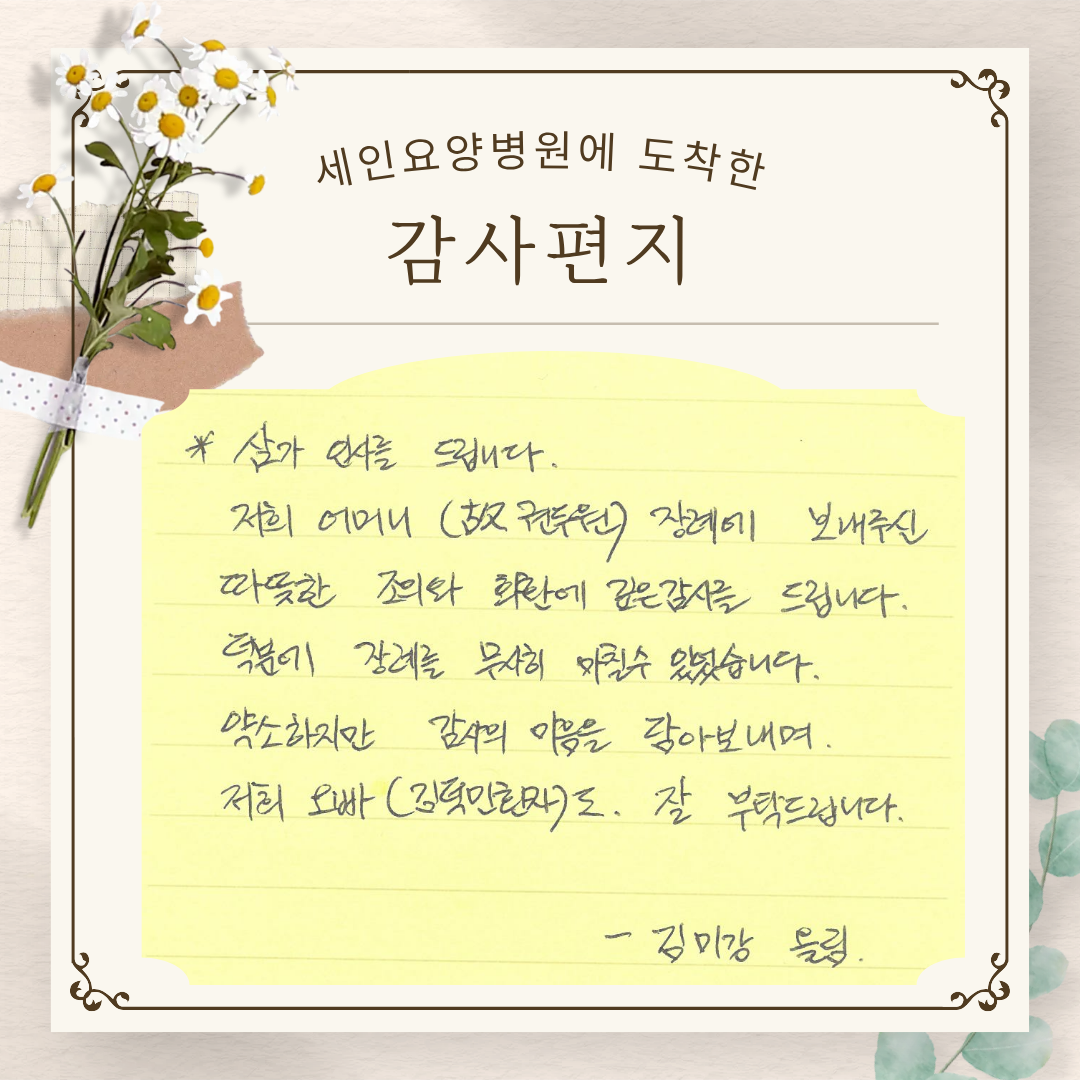 세인요양병원에 도착한
감사편지
* 삼가 인사를 드립니다.
저희 어머니 (故 권두원) 장례에 보내주신
따뜻한 조의와 화환에 깊은감사를 드립니다.
덕분에 장례를 무사히 마칠수 있었습니다.
약소하지만 감사의 마음을 담아보내며.
저희 오빠 (김덕민환자)도. 잘 부탁드립니다.
- 김미강 올림.